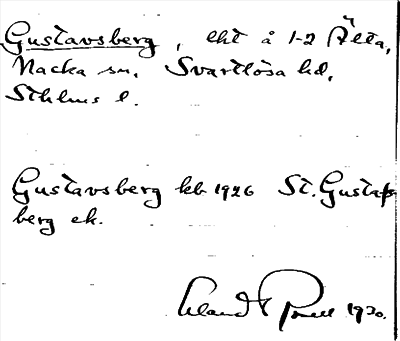 Gustavsberg, lht å 1-2 Älta,
Nacka sn. Svartlösa hd,
Sthlms l.
Gustavsberg kb 1926 St. Gustafs
berg ek.
1930.